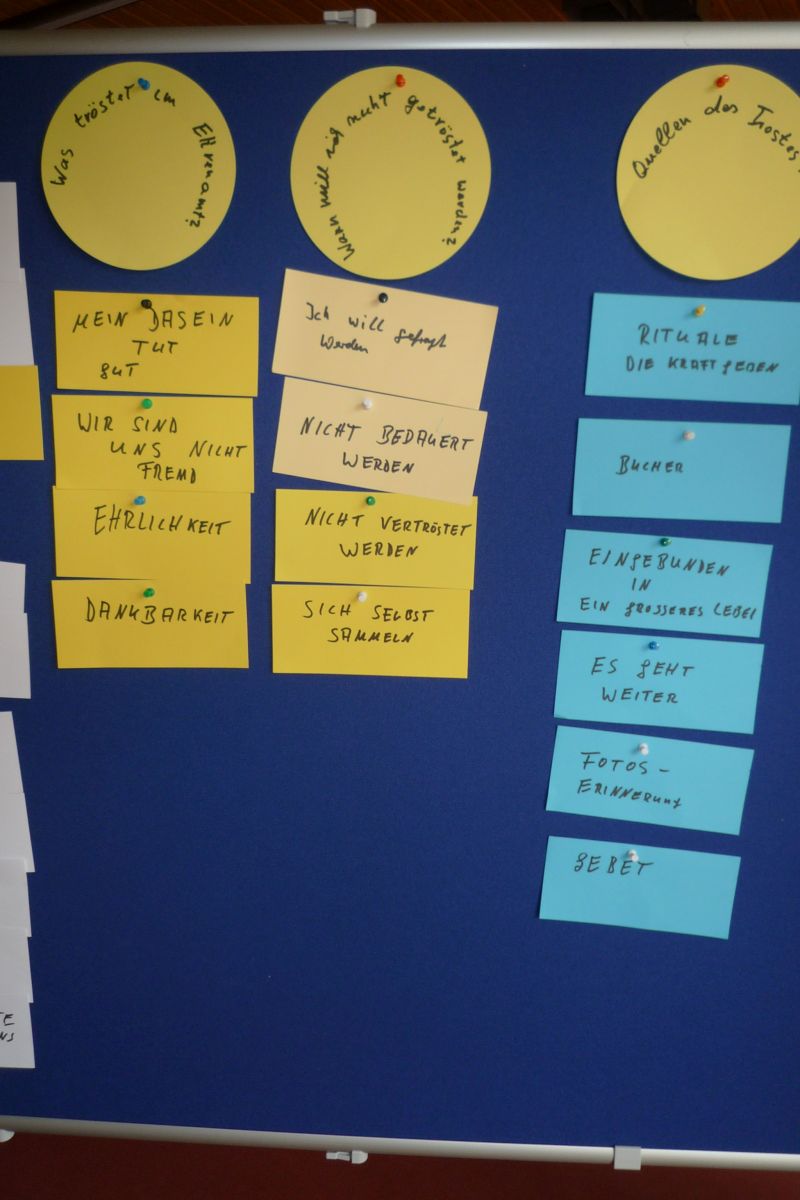 Was tröstet im Ehrenamt?
MEIN DASEIN
TUT
GUT
WIR SIND
UNS NICHT
FREMD
EHRLICHKEIT
DANKBARKEIT
Wann will ich nicht getröstet werden?
Ich will gefragt
werden
NICHT BEDAUERT
WERDEN
NICHT VERTRÖSTET
WERDEN
SICH SELBST
SAMMELN
Quellen des Trostes
RITUALE
DIE KRAFT GEBEN
BÜCHER
EINGEBUNDEN
IN
EIN GROSSERES LEBEN
ES GEHT
WEITER
FOTOS -
ERINNERUNG
GEBET